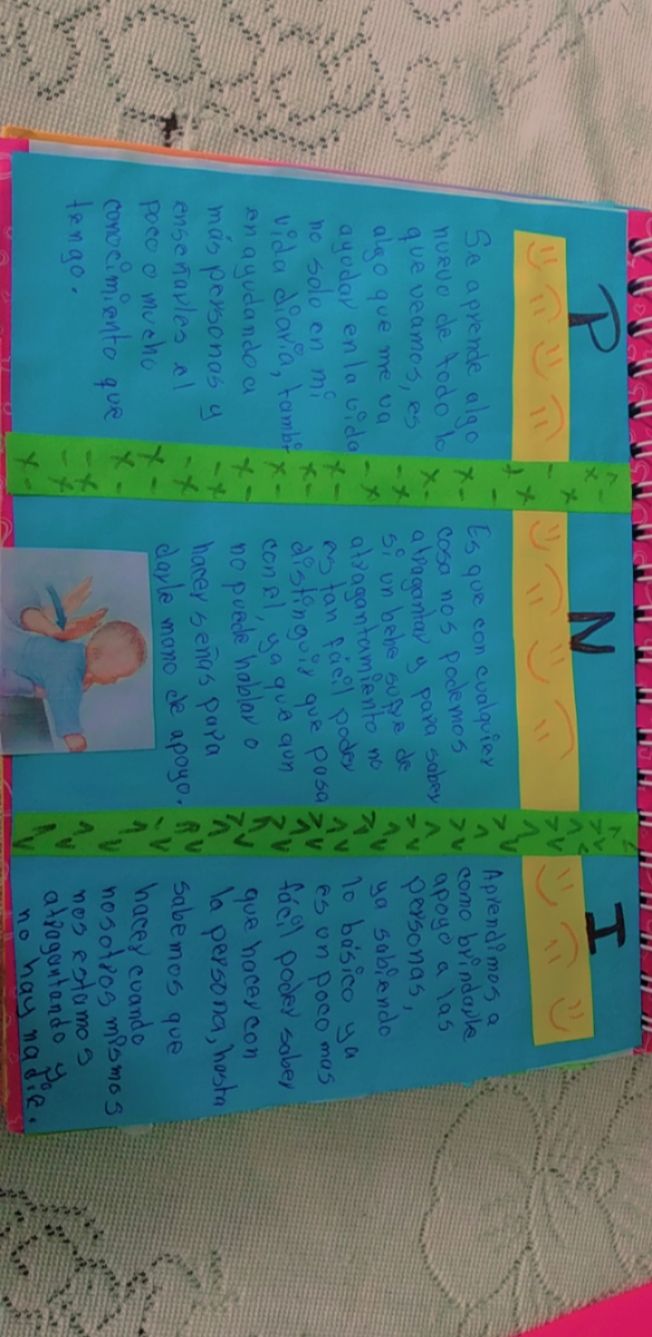 P
Se aprende algo
nuevo de todo lo
que veamos, es
algo que me va
ayudar en la vida
no solo en mi
vida diaria, tambi
en ayudando a
más personas y
enseñarles el
poco o mucho
conocimiento que
tengo.
N
Es que con cualquier
cosa nos podemos
atragantar y para saber
si un bebe sufre de
atragantamiento no
es tan fácil poder
distinguir que pasa
con el, ya que aun
no puede hablar o
hacer señas para
darle mano de apoyo.
I
Aprendimos a
como brindarle
apoyo a las
personas,
ya sabiendo
lo básico ya
es un poco mas
fácil poder saber
que hacer con
la persona, hasta
sabemos que
hacer cuando
nosotros mismos
nos estamos
atragantando y
no hay nadie.